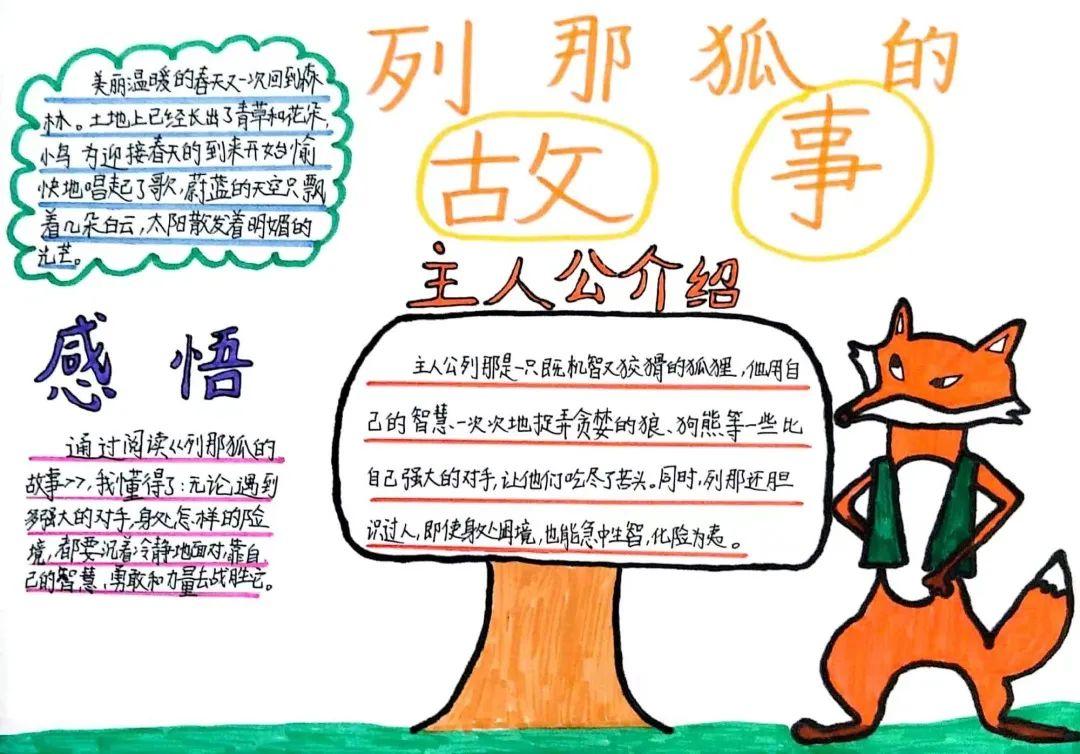 列那狐的
故事
美丽温暖的春天又一次回到森
林。土地上已经长出了青草和花朵,
小鸟为迎接春天的到来开始愉
快地唱起了歌,蔚蓝的天空只飘
着几朵白云,太阳散发着明媚的
光芒。
主人公介绍
主人公列那是一只既机智又狡猾的狐狸,他用自
己的智慧一次次地捉弄贪婪的狼、狗熊等一些比
自己强大的对手,让他们吃尽了苦头。同时,列那还胆
识过人,即使身处困境,也能急中生智,化险为夷。
感悟
通过阅读《列那狐的
故事》,我懂得了:无论遇到
多强大的对手,身处怎样的险
境,都要沉着冷静地面对,靠自
己的智慧,勇敢和力量去战胜它。